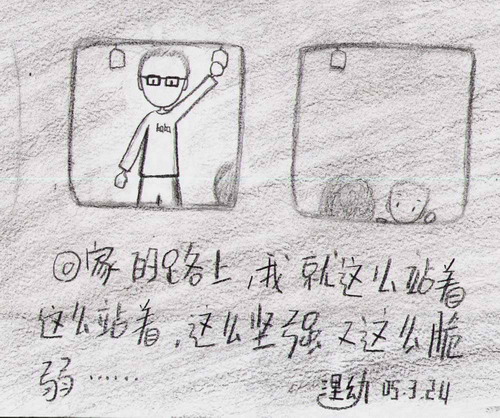 lala
回家的路上，我就这么站着
这么站着，这么坚强又这么脆
弱……
05.3.24